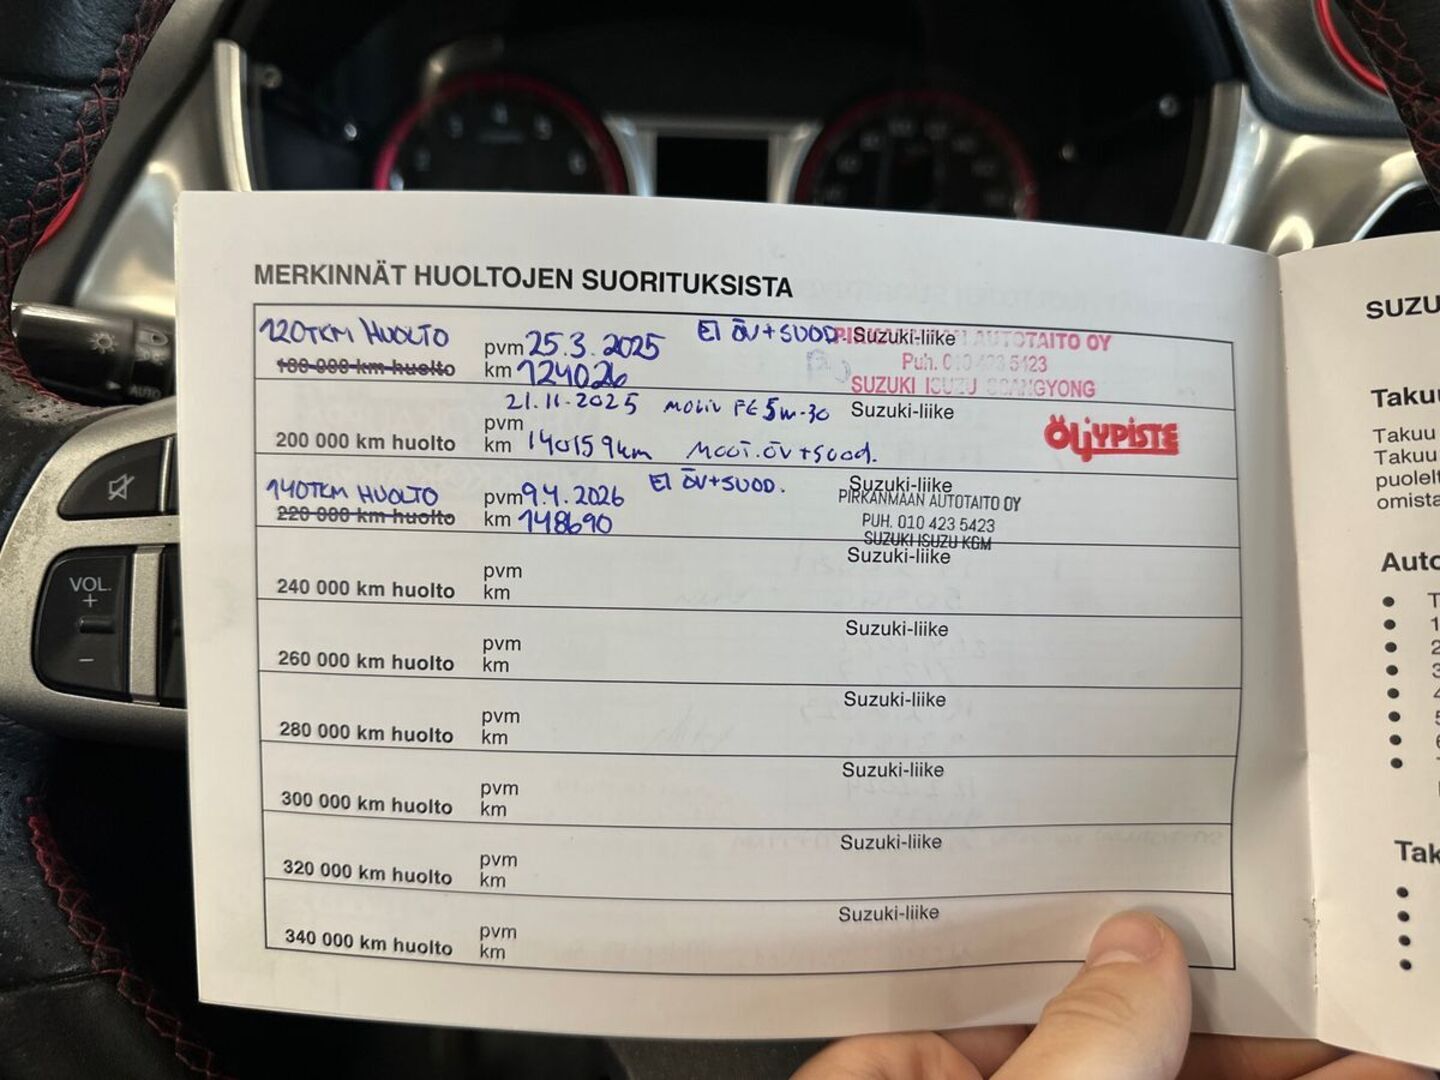 MERKINNÄT HUOLTOJEN SUORITUKSISTA
120TKM HUOLTO
180 000 km huolto
pvm 25.3.2025
km 124026
EI ÖV+SUOD.
Suzuki-liike
AUTOTAITO OY
Puh. 010 423 5423
SUZUKI ISUZU SSANGYONG
200 000 km huolto
21.11.2025
pvm
km 140159km
5W-30
MOOT.ÖV+SUOD.
Suzuki-liike
ÖLJYPISTE
140TKM HUOLTO
220 000 km huolto
pvm 9.4.2026
km 148690
EI ÖV+SUOD.
Suzuki-liike
PIRKANMAAN AUTOTAITO OY
PUH. 010 423 5423
SUZUKI ISUZU KGM
240 000 km huolto
pvm
km
Suzuki-liike
260 000 km huolto
pvm
km
Suzuki-liike
280 000 km huolto
pvm
km
Suzuki-liike
300 000 km huolto
pvm
km
Suzuki-liike
320 000 km huolto
pvm
km
Suzuki-liike
340 000 km huolto
pvm
km
Suzuki-liike
SUZU
Takuu
Takuu
Takuu
puolelt
omista
Auto
Tak
VOL.
+
−
AUTO